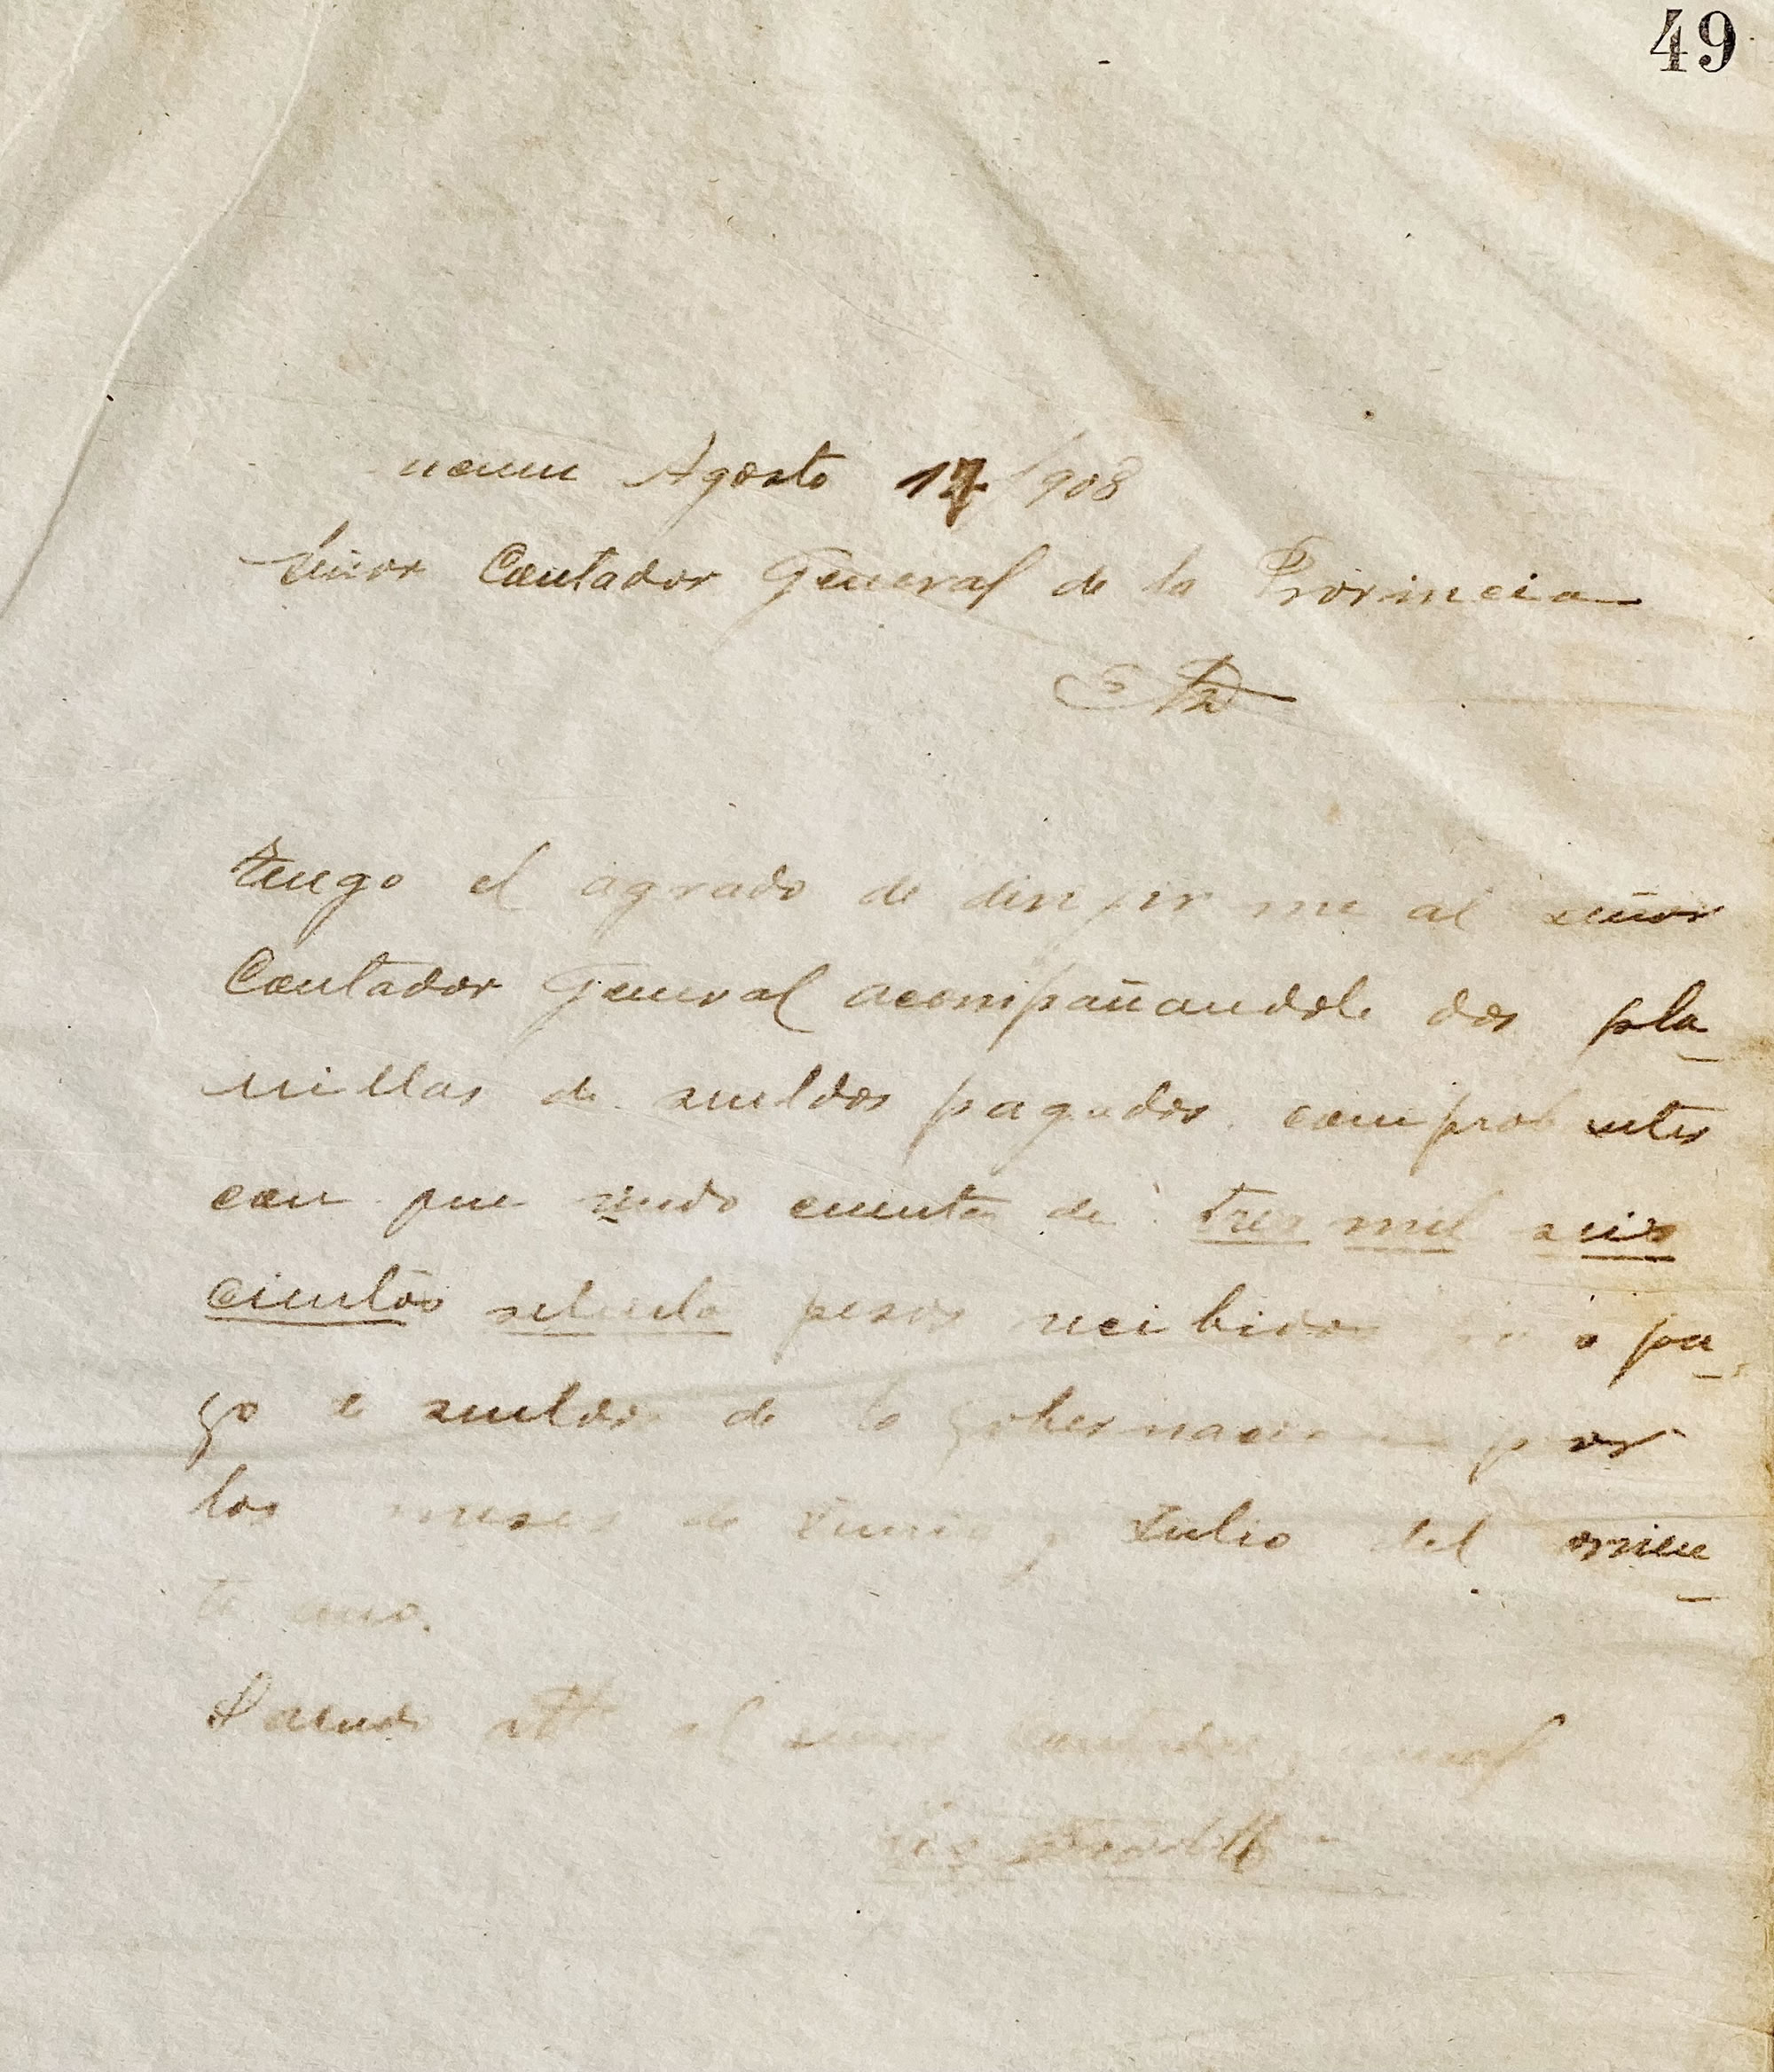 49
Agosto 17/908
Señor Contador General de la Provincia
Tengo el agrado de dirigirme al señor
Contador General acompañandole dos pla-
nillas de sueldos pagados, comprobantes
con que rindo cuenta de tres mil seis
cientos setenta pesos recibidos pa-
go de sueldos de la gobernacion por
los meses de Junio y Julio del corrien-
te año.
Saludo atte al señor contador general